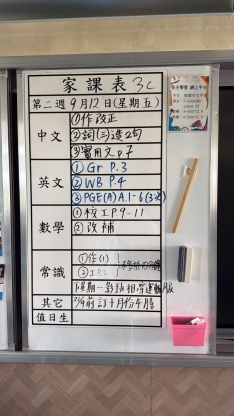 家課表 3C
第二週 9月12日(星期五)
中文
①作改正
②詞(三)造2句
③實用文 p.7
英文
① Gr P.3
② WB P.4
③ PGE(A) A.1-6(3次)
數學
①校工P.9-11
②改補
常識
①作(1)
②工P.2
下星期一
運動服
其它
前訂十月份午膳
值日生
自主學習 網上平台